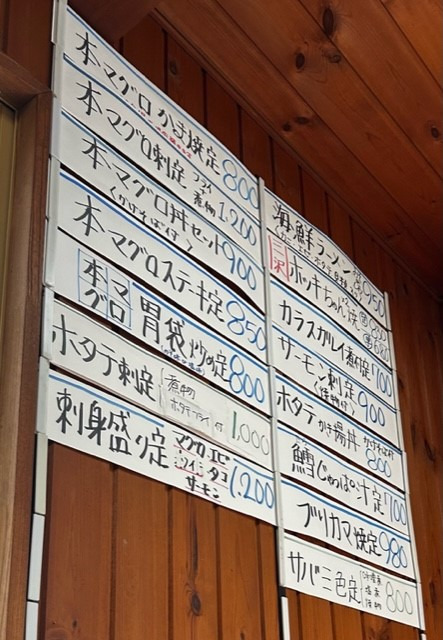 本マグロかま焼定 800
本マグロ刺定 フライ 煮物 1,200
本マグロ丼セット 900
(かけそば付)
本マグロステーキ定 850
本マグロ 胃袋炒め定 800
ホタテ刺定 煮物 ホタテフライ付 1,000
刺身盛り定 マグロ エビ ツブ タコ サーモン 1,200
海鮮ラーメン 950
ホッキちゃん焼
カラスガレイ煮付定 700
サーモン刺定 900
ホタテかき揚丼 かけそば付 800
鱈じゃっぱ汁定 700
ブリカマ焼定 980
サバ三色定 800